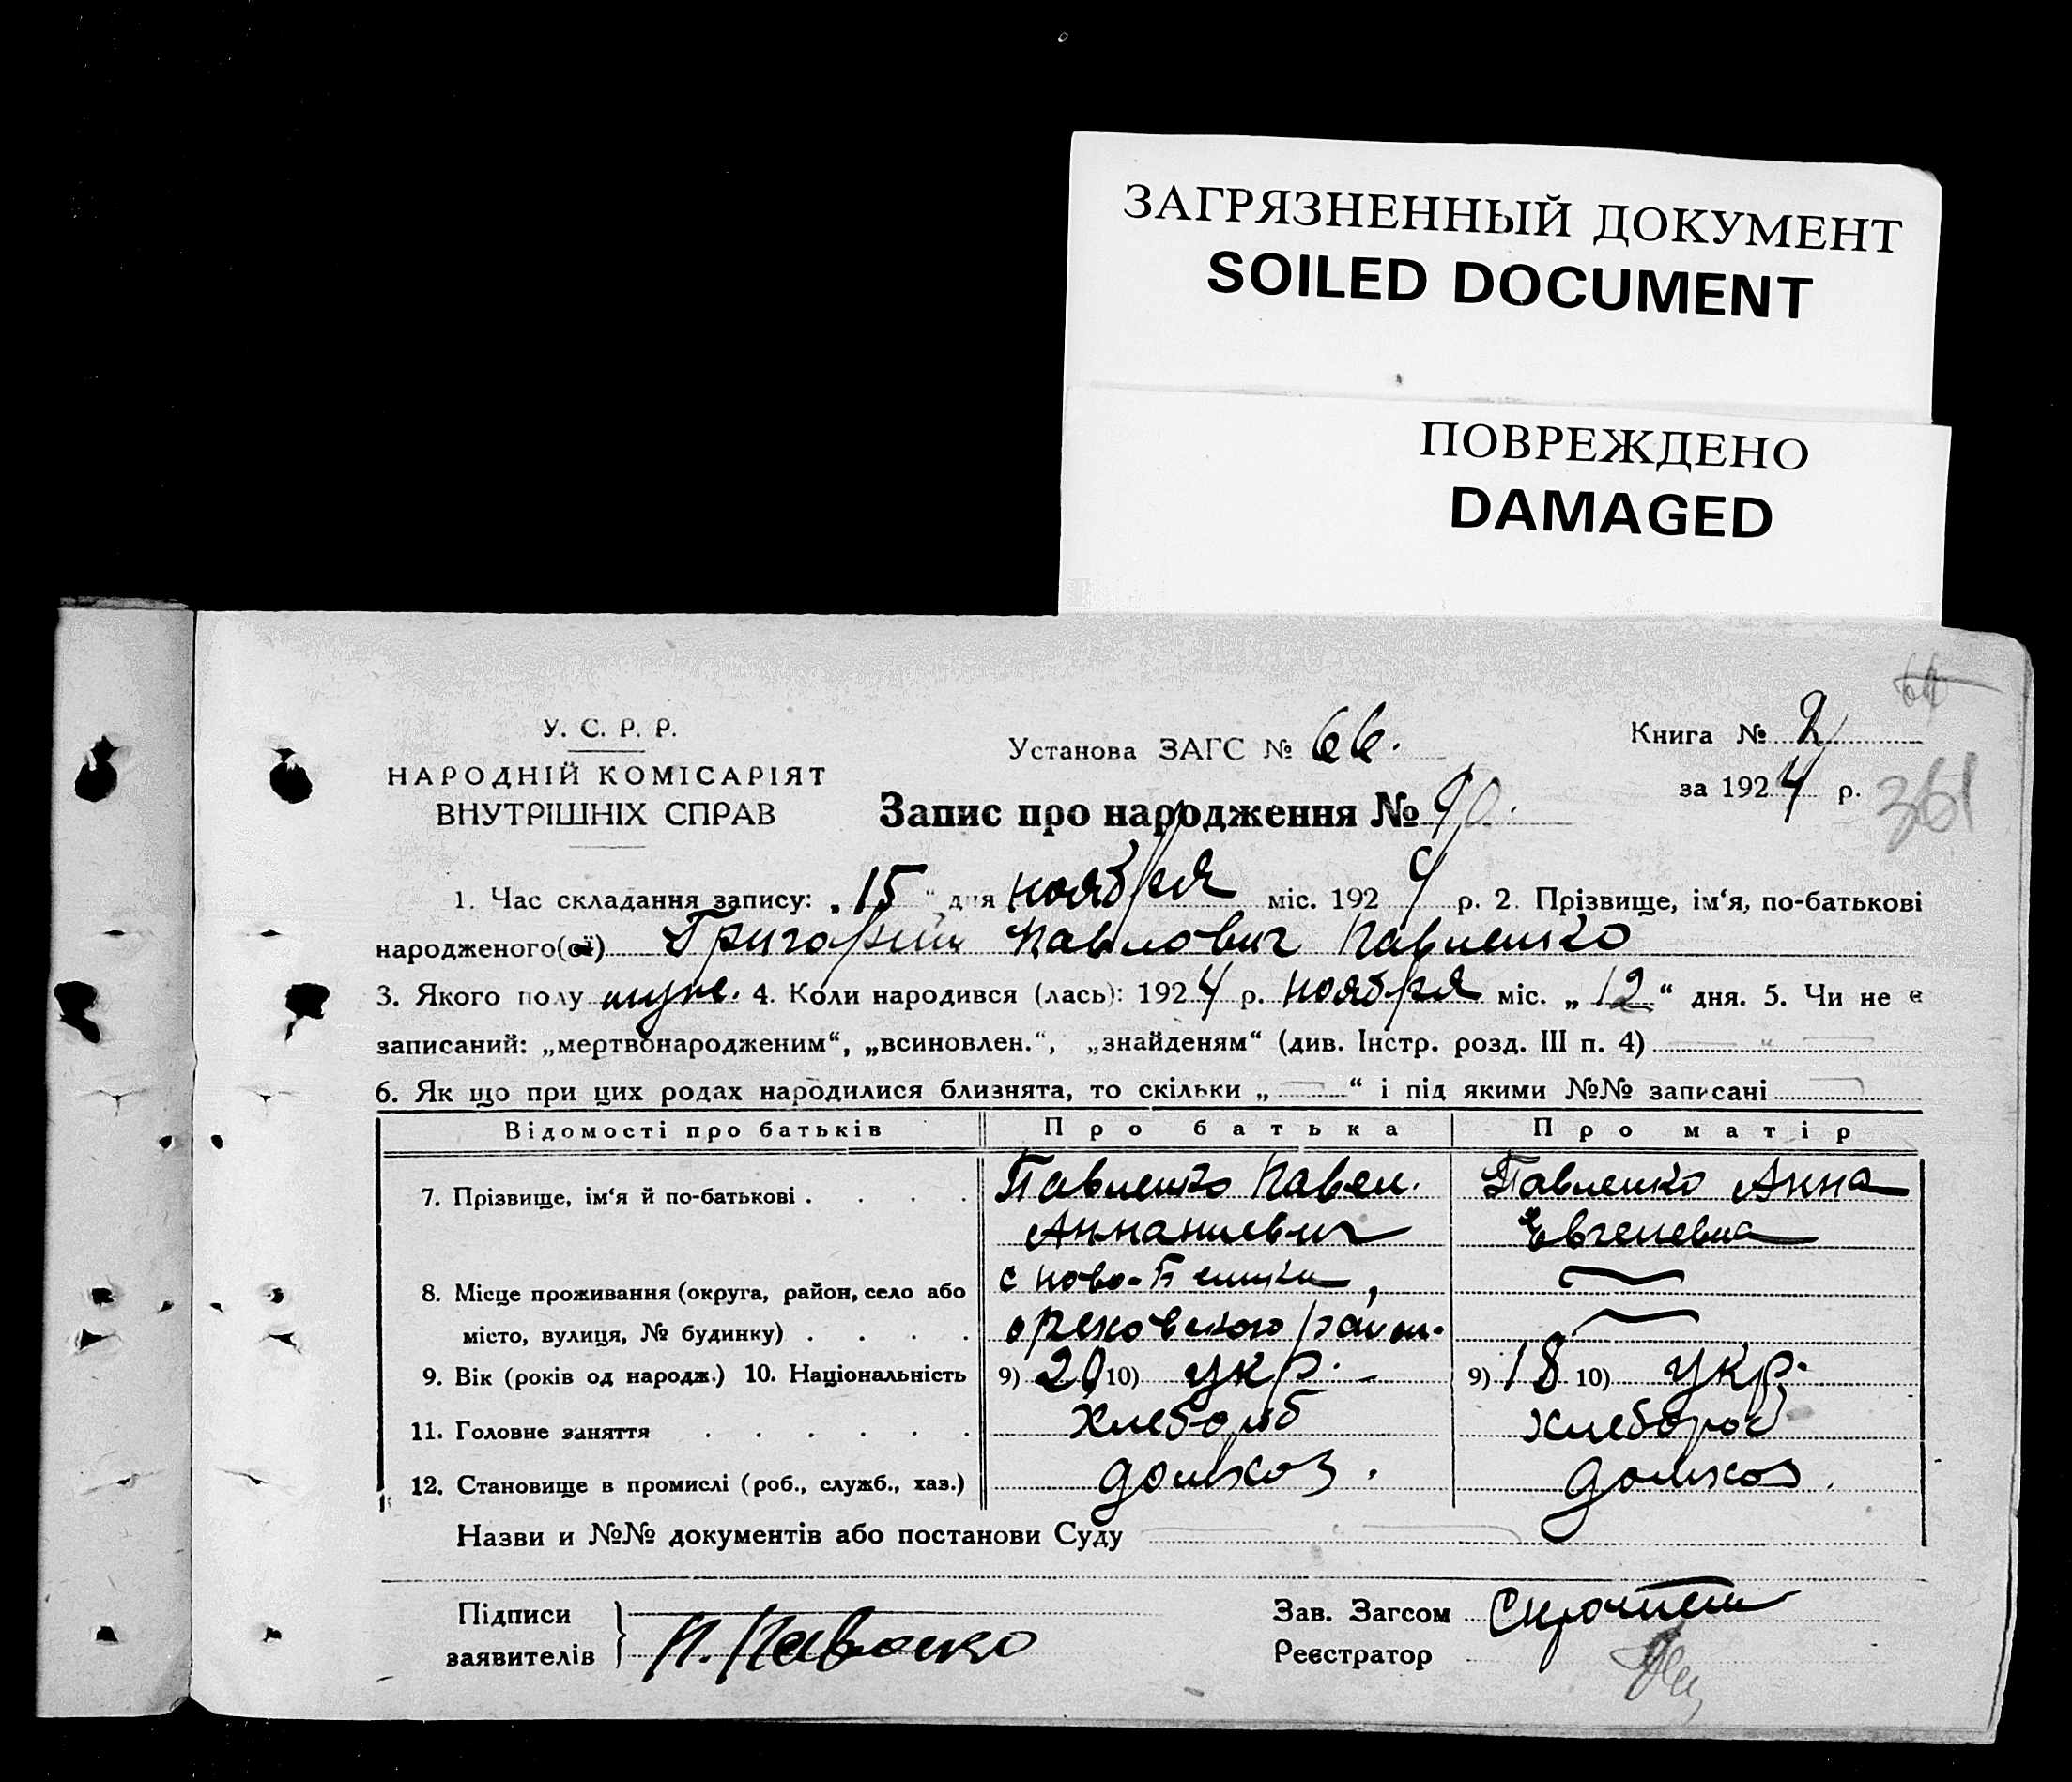 ЗАГРЯЗНЕННЫЙ ДОКУМЕНТ
SOILED DOCUMENT
ПОВРЕЖДЕНО
DAMAGED
64
У. С. Р. Р.
НАРОДНІЙ КОМІСАРІЯТ
ВНУТРІШНІХ СПРАВ
Установа ЗАГС № 66.
Книга № 2
за 1924 р.
361
Запис про народження № 90.
1. Час складання запису: „15“ дня ноября міс. 1924 р. 2. Прізвище, ім‘я, по-батькові
народженого(ої) Григорий Павлович Павленко
3. Якого полу муже. 4. Коли народився (лась): 1924 р. ноября міс. „12“ дня. 5. Чи не є
записаний: „мертвонародженим“, „всиновлен.“, „знайденям“ (див. Інстр. розд. III п. 4) — „ —
6. Як що при цих родах народилися близнята, то скільки „ — “ і під якими №№ записані —
Відомості про батьків Про батька Про матір
7. Прізвище, ім‘я й по-батькові . . . . Павленко Павел. Павленко Анна
Аннаниевич Евгеневна
8. Місце проживання (округа, район, село або с Ново-
місто, вулиця, № будинку) . . . . ореховского район.
9. Вік (років од народж.) 10. Національність 9) 20 10) укр. — 9) 18 10) укр.
11. Головне заняття . . . . . . Хлебороб хлебороб
12. Становище в промислі (роб., служб., хаз.) домхоз. домхоз.
Назви и №№ документів або постанови Суду — „ —
Підписи
заявителів } П. Павленко
Зав. Загсом
Реєстратор